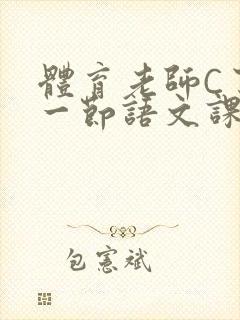 體育老師C
一節語文課
包憲斌